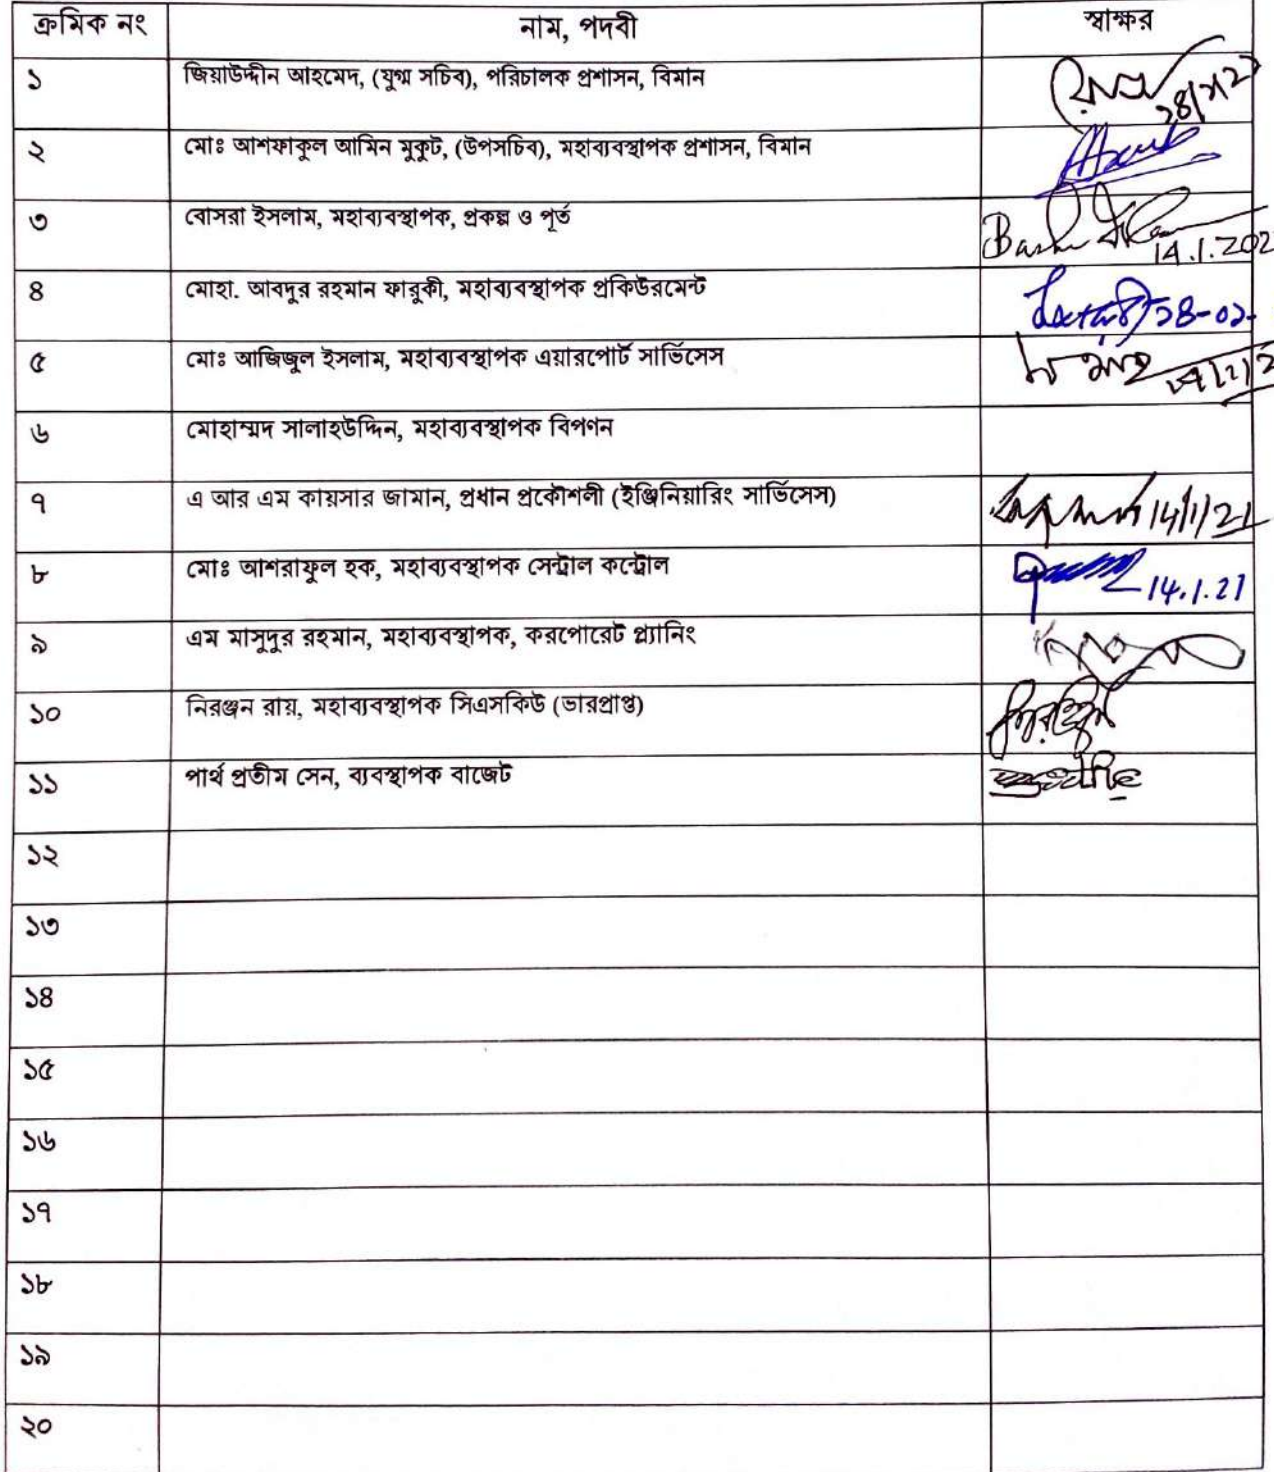 ক্রমিক নং নাম, পদবী স্বাক্ষর
১ জিয়াউদ্দীন আহমেদ, (যুগ্ম সচিব), পরিচালক প্রশাসন, বিমান
২ মোঃ আশফাকুল আমিন মুকুট, (উপসচিব), মহাব্যবস্থাপক প্রশাসন, বিমান
৩ বোসরা ইসলাম, মহাব্যবস্থাপক, প্রকল্প ও পূর্ত 14.1.202
৪ মোহা. আবদুর রহমান ফারুকী, মহাব্যবস্থাপক প্রকিউরমেন্ট ১৪-০১-
৫ মোঃ আজিজুল ইসলাম, মহাব্যবস্থাপক এয়ারপোর্ট সার্ভিসেস
৬ মোহাম্মদ সালাহউদ্দিন, মহাব্যবস্থাপক বিপণন
৭ এ আর এম কায়সার জামান, প্রধান প্রকৌশলী (ইঞ্জিনিয়ারিং সার্ভিসেস) 14/1/21
৮ মোঃ আশরাফুল হক, মহাব্যবস্থাপক সেন্ট্রাল কন্ট্রোল 14.1.21
৯ এম মাসুদুর রহমান, মহাব্যবস্থাপক, করপোরেট প্ল্যানিং
১০ নিরঞ্জন রায়, মহাব্যবস্থাপক সিএসকিউ (ভারপ্রাপ্ত)
১১ পার্থ প্রতীম সেন, ব্যবস্থাপক বাজেট
১২
১৩
১৪
১৫
১৬
১৭
১৮
১৯
২০